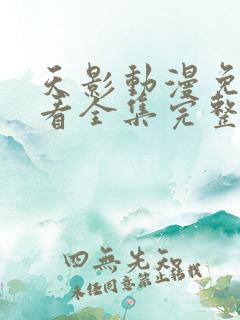 天影動漫免
看全集完整
四無先知
未經同意禁止轉載